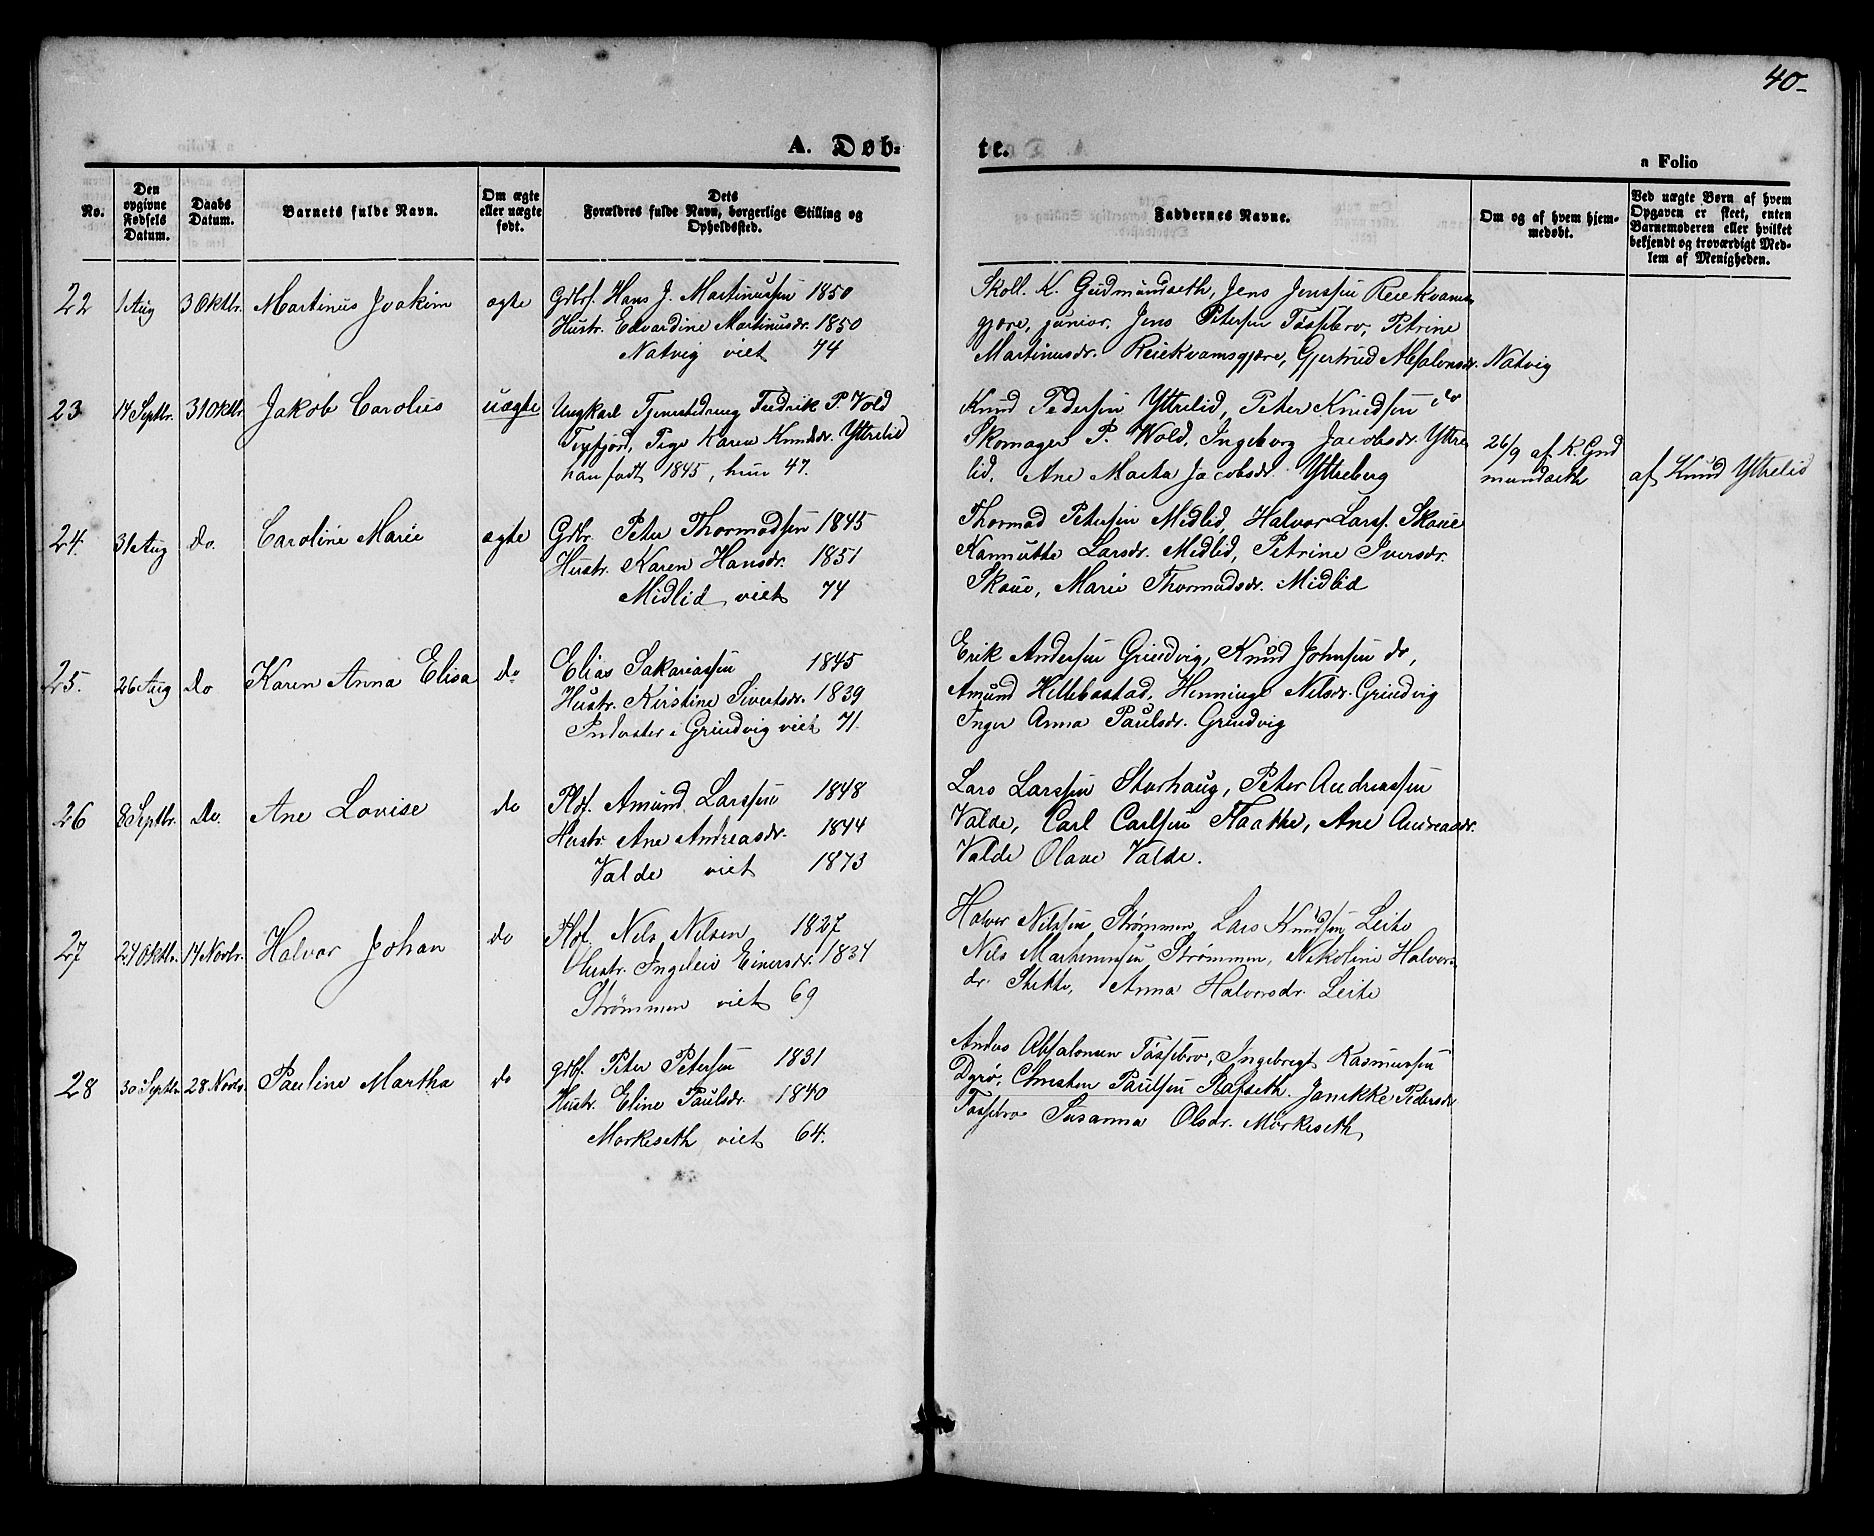 40-
A. Døb-
te.
n Folio
No.
Den opgivne Fødsels Datum.
Daabs Datum.
Barnets fulde Navn.
Om ægte eller uægte født.
Dets Forældres fulde Navn, borgerlige Stilling og Opholdssted.
Faddernes Navne.
Om og af hvem hjemmedøbt.
Ved uægte Børn af hvem Opgaven er skeet, enten Barnemoderen eller hvilket bekjendt og troværdigt Medlem af Menigheden.
22 1 Aug 3 Oktbr. Martinus Joakim ægte
Hans J. Martinussen 1850
Hustr. Edvardine Martinusdr. 1850
Natvig viet 74
Skoll. K. Gudmundseth, Jens Jenssen Reiekvams-
gjære, junior, Jens Petersen Tøssebro, Petrine
Martinusdr. Reiekvamsgjære, Gjertrud Absalonsdr. Natvig
23 14 Septbr. 31 Oktbr. Jakob Carolus uægte
Ungkarl Tjenestedreng Fredrik P. Vold
Pige Karen Knudsdr. Yttrelid
han født 1845, hun 47.
Knud Pedersen Yttrelid, Peter Knudsen do
Skomager P. Wold, Ingeborg Jacobsdr. Yttre-
lid, Ane Marta Jacobsdr. Yttreberg
26/9 af K. Gud
mundseth
af Knud Yttrelid
24. 31 Aug do. Caroline Marie ægte
Gdbr. Peter Thormodsen 1845
Hustr. Karen Hansdr. 1851
Midlid viet 74
Thormod Petersen Midlid, Halvor Larss. Skaue
Larsdr. Midlid, Petrine Iversdr.
Skaue, Marie Thormodsdr. Midlid
25. 26 Aug do Karen Anna Elisa do
Elias Sakariassen 1845
Hustr. Kirstine Sivertsdr. 1839
Inderster i Grindvig viet 71.
Erik Andersen Grindvig, Knud Johnsen do,
Amund Hellebostad, Henninge Nilsdr. Grindvig
Inger Anna Paulsdr. Grindvig
26 8 Septbr. do. Ane Lovise do
Pldf. Amund Larssen 1848
Hustr. Ane Andreasdr. 1844
Valde viet 1873
Lars Larssen Storhaug, Peter Andreassen
Valde, Carl Carlsen Flaatke, Ane Andreasdr.
Valde Olave Valde.
27 24 Oktbr. 14 Novbr. Halvor Johan do
Pldf. Nels Nelsen 1827
Hustr. Ingeleiv Einersdr. 1834
Strømmen viet 69
Halvor Nilssen Strømmen, Lars Knudsen Leite
Nils Strømmen, Nikoline Halvors-
dr. Anna Halvorsdr. Leite
28 30 Septbr. 28 Novbr. Pauline Martha do
gdbf. Peter Petersen 1831
Hustr. Eline Paulsdr. 1840
Morkeseth, viet 64.
Anders Absalonsen Tøssebro, Ingebregt Rasmussen
Dyrø, Christen Paulsen Rafseth. Janikke Pedersdr
Tøssebro Susanna Olsdr. Morkeseth